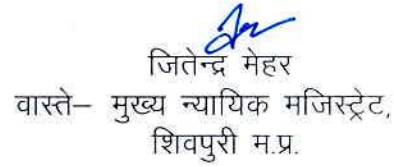 जितेन्द्र मेहर
वास्ते– मुख्य न्यायिक मजिस्ट्रेट,
शिवपुरी म.प्र.